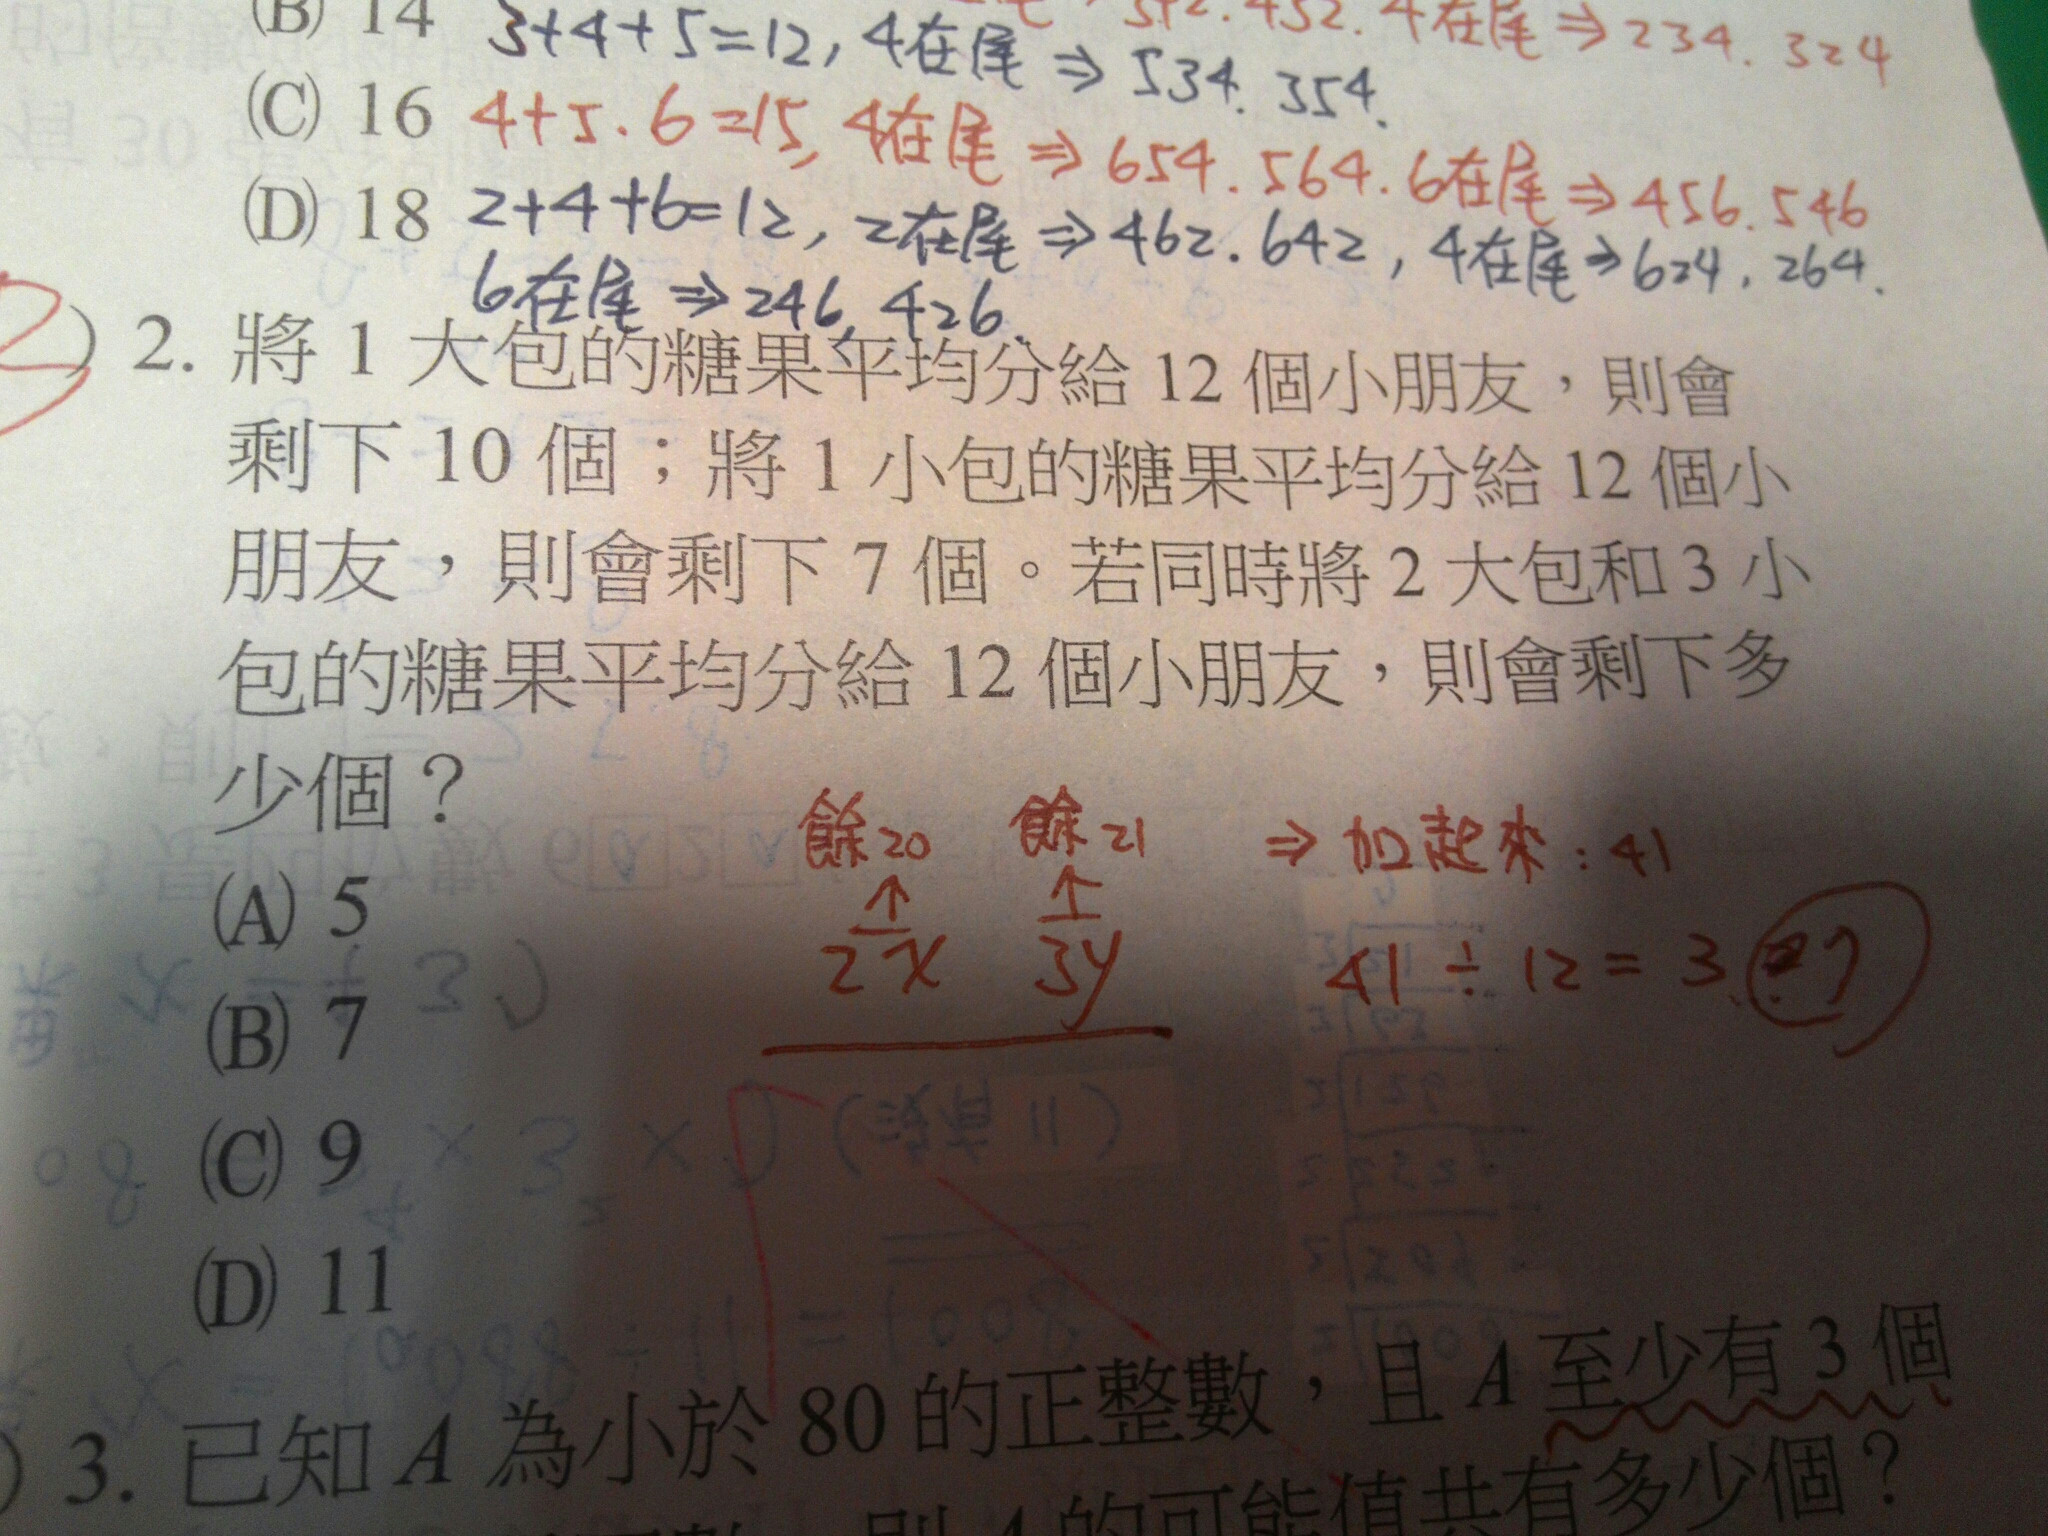 (B) 14
542.452.4在尾⇒234.324
3+4+5=12,4在尾⇒534.354.
(C) 16 4+5.6=15,4在尾⇒654.564.6在尾⇒456.546
(D) 18 2+4+6=12,2在尾⇒462.642,4在尾⇒624,264.
6在尾⇒246,426.
)2. 將 1 大包的糖果平均分給 12 個小朋友，則會
剩下 10 個；將 1 小包的糖果平均分給 12 個小
朋友，則會剩下 7 個。若同時將 2 大包和 3 小
包的糖果平均分給 12 個小朋友，則會剩下多
少個？
餘20 餘21 ⇒加起來:41
↑ ↑
2x 3y 41÷12=3
(A) 5
(B) 7
(C) 9
(D) 11
)3. 已知 A 為小於 80 的正整數，且 A 至少有 3 個
則 A 的可能值共有多少個？